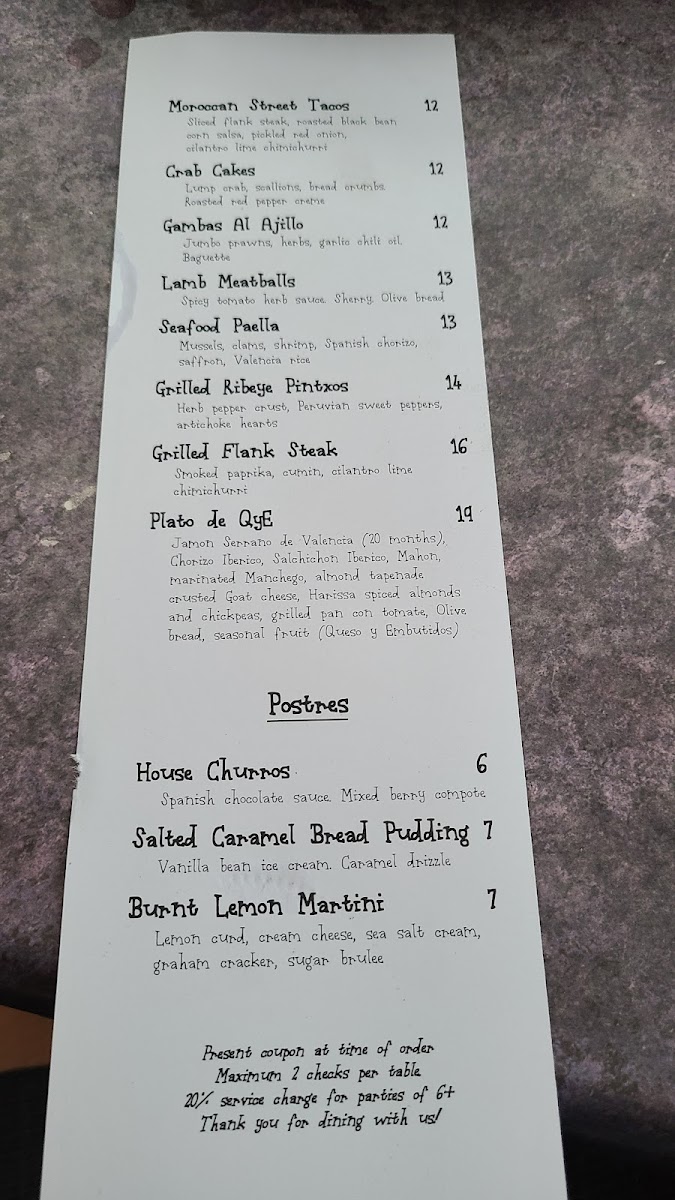 Moroccan Street Tacos 12
Sliced flank steak, roasted black bean
corn salsa, pickled red onion,
cilantro lime chimichurri
Crab Cakes 12
Lump crab, scallions, bread crumbs.
Roasted red pepper creme
Gambas Al Ajillo 12
Jumbo prawns, herbs, garlic chili oil.
Baguette
Lamb Meatballs 13
Spicy tomato herb sauce. Sherry. Olive bread
Seafood Paella 13
Mussels, clams, shrimp, Spanish chorizo,
saffron, Valencia rice
Grilled Ribeye Pintxos 14
Herb pepper crust, Peruvian sweet peppers,
artichoke hearts
Grilled Flank Steak 16
Smoked paprika, cumin, cilantro lime
chimichurri
Plato de QyE 19
Jamon Serrano de Valencia (20 months),
Chorizo Iberico, Salchichon Iberico, Mahon,
marinated Manchego, almond tapenade
crusted Goat cheese, Harissa spiced almonds
and chickpeas, grilled pan con tomate, Olive
bread, seasonal fruit (Queso y Embutidos)
Postres
House Churros 6
Spanish chocolate sauce. Mixed berry compote
Salted Caramel Bread Pudding 7
Vanilla bean ice cream. Caramel drizzle
Burnt Lemon Martini 7
Lemon curd, cream cheese, sea salt cream,
graham cracker, sugar brulee
Present coupon at time of order
Maximum 2 checks per table
20% service charge for parties of 6+
Thank you for dining with us!